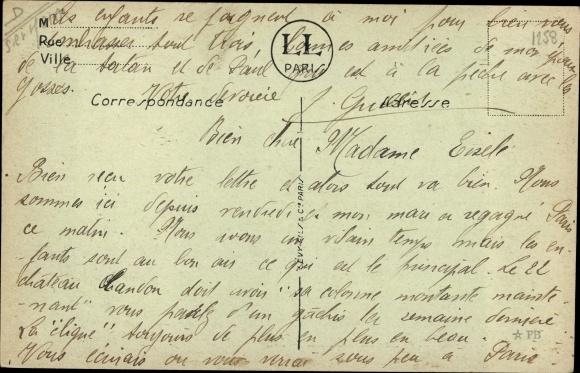 D
1258
M
Rue
Ville
LL
PARIS
Correspondance
Adresse
LEVY FILS & Cie PARIS
Bien chère Madame Eisele
Bien reçu votre lettre et alors tout va bien. Nous
sommes ici depuis vendredi et mon mari a regagné Paris
ce matin. Nous avons un vilain temps mais les en-
-fants sont au bon air ce qui est le principal. Le 22
château Landon doit avoir "sa colonne montante mainte-
nant" vous parlez d'un gâchis la semaine dernière
La "clique" toujours de plus en plus en beau.
Vous écrirais ou vous verrai sous peu à Paris
Les enfants se joignent à moi pour bien vous
embrasser tout trois, bonnes amitiés de mon
de la tatan et de Paul est à la pêche avec les
gosses. Votre dévouée
FB